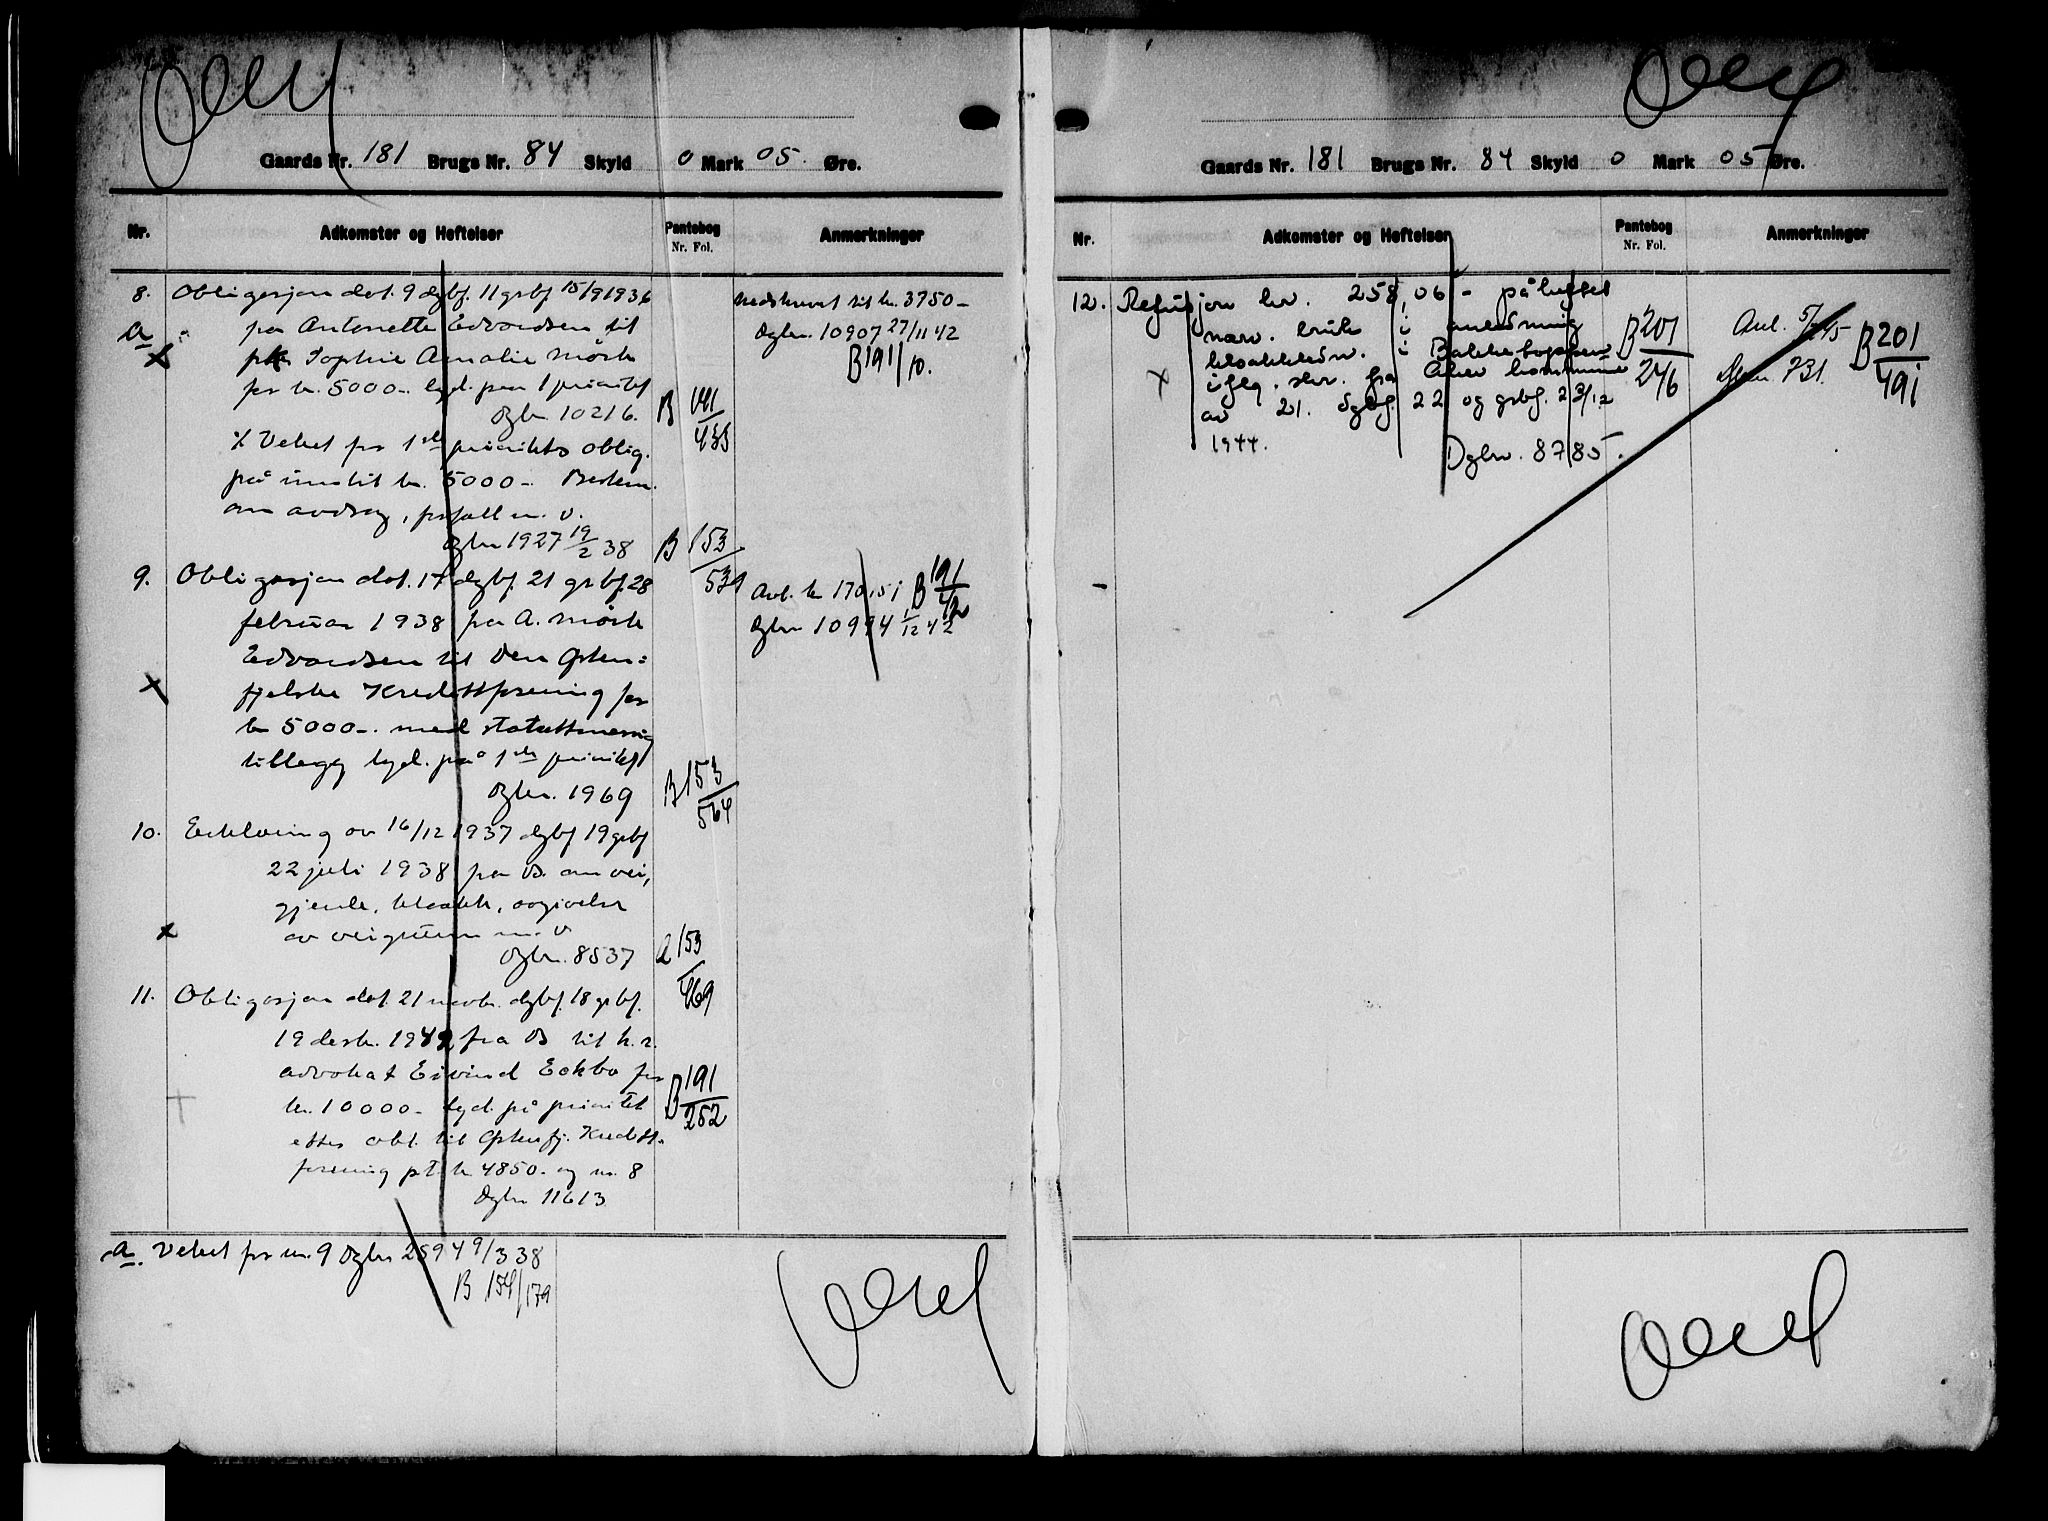 Gaards Nr. 181 Brugs Nr. 84 Skyld 0 Mark 05 Øre.
Nr. Adkomster og Heftelser Pantebog Nr. Fol. Anmerkninger
8. Obligasjon dat. 9 dgbf. 11 grbf 15/9 1936
a fra Antonette Edvardsen til
Sophie Amalie Mørk
for kr. 5000.- lyd. paa 1 prioritet
Dgbnr 10216.
Veket for 1ste prioritets oblig.
på inntil kr. 5000-. Bestem.
om avdrag, forfall m. v.
Dgbnr 1927 19/2 38
B 153/
nedskrevet til kr. 3750-
Dgbnr. 10907 27/11 42
B 191/10.
9. Obligasjon dat. 17 dgbf. 21 grbf. 28
februar 1938 fra A. Mørk
Edvardsen til Den Østen-
fjelske Kredittforening for
kr 5000-. med statuttmessig
tillegg lyd. på 1ste prioritet
Dgbnr. 1969
B 153/564
Avl.
Dgbnr 10994 1/12 42
B 191/
10. Erklæring av 16/12 1937 dgbf 19 grbf
22 juli 1938 fra D. om vei,
gjerde, kloakk, avgivelse
av veigrunn m. v
Dgbnr. 8537
a 153/469
11. Obligasjon dat. 21 novbr. dgbf. 18 grbf.
19 desbr. 1942 fra D til h. r.
advokat Eivind Eckbo for
kr. 10000- lyd. på prioritet
etter obl. til Østenfj. Kreditt-
forening pt. kr 4850.- og nr. 8
Dgbnr 11613
B 191/252
a. Veket for nr. 9 Dgbnr 2594 9/3 38
B 154/179
Gaards Nr. 181 Brugs Nr. 84 Skyld 0 Mark 05 Øre.
Nr. Adkomster og Heftelser Pantebog Nr. Fol. Anmerkninger
12. Refusjon kr. 258,06 - påheftet
nærv. bruk i anledning
kloakkledn. i Bakkehoppen
ifølg. skr. fra Aker kommune
av 21. dgbf. 22 og grbf. 23/12
1944.
Dgbnr. 8785.
B 201/246
Avl. 5/7 45
Dgbnr. 731.
B 201/491